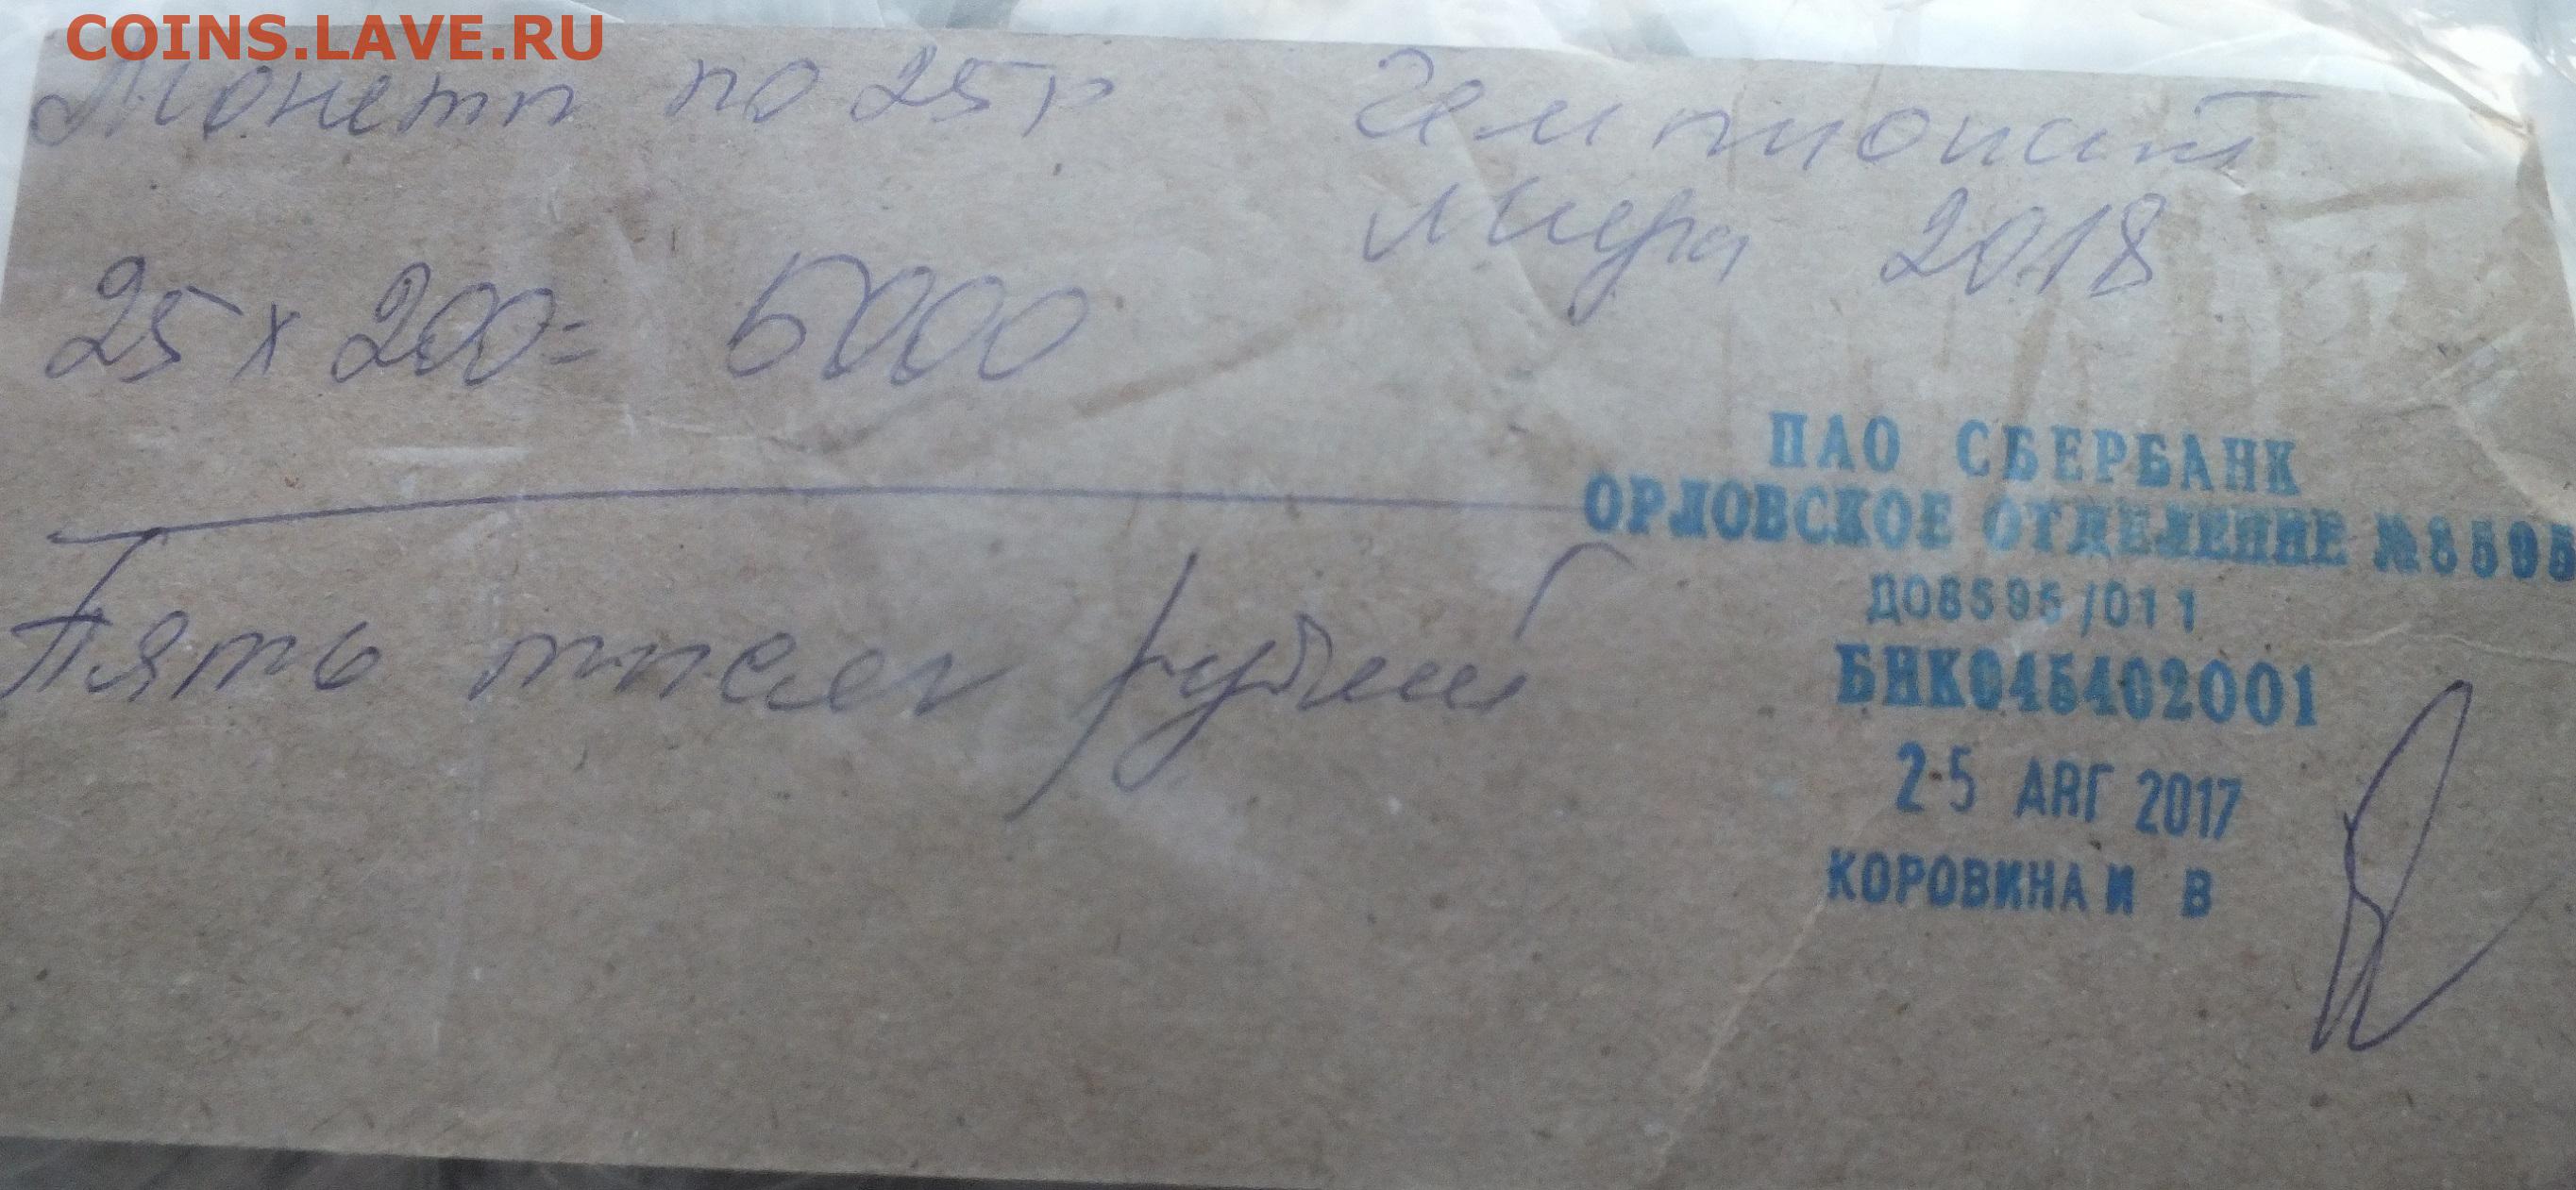 COINS.LAVE.RU
Монеты по 25 р Чемпионат
мира 2018
25 х 200 = 5000
ПАО СБЕРБАНК
ОРЛОВСКОЕ ОТДЕЛЕНИЕ №8595
Пять тысяч рублей
ДО8595/011
БИК045402001
25 АВГ 2017
КОРОВИНА И В